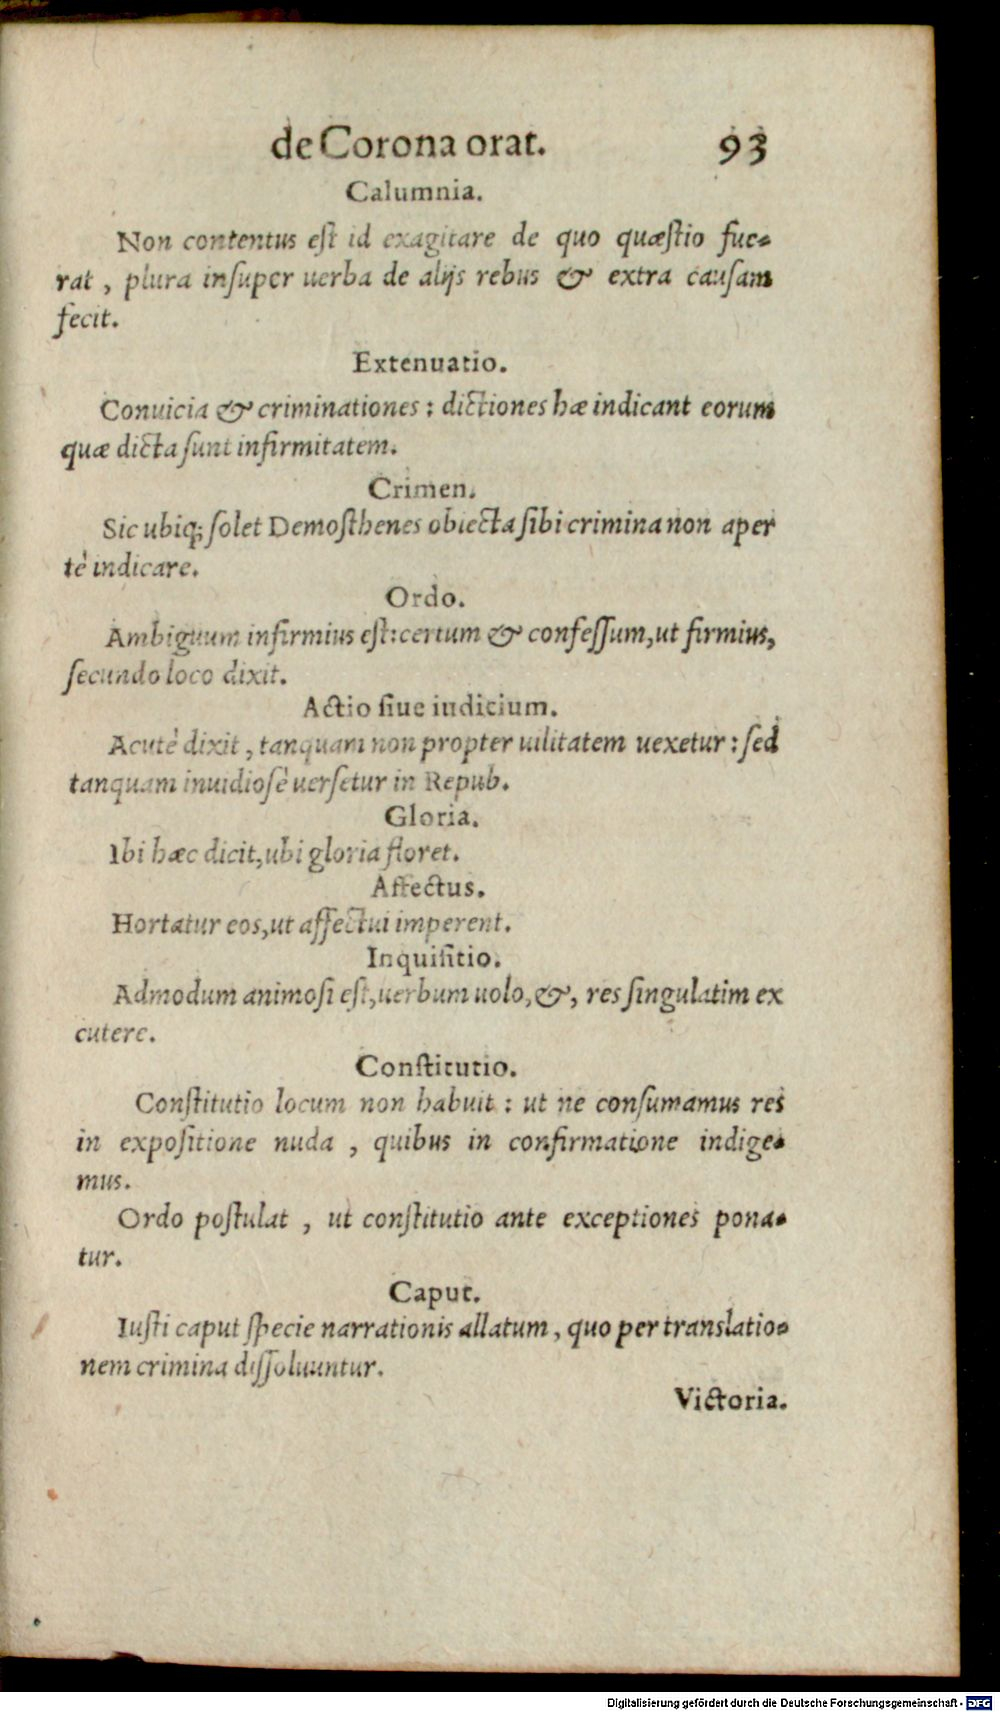 de Corona orat. 93
Calumnia.
Non contentus est id exagitare de quo quæstio fue-
rat, plura insuper uerba de alijs rebus & extra causam
fecit.
Extenuatio.
Conuicia & criminationes: dictiones hæ indicant eorum
quæ dicta sunt infirmitatem.
Crimen.
Sic ubiq; solet Demosthenes obiecta sibi crimina non aper
tè indicare.
Ordo.
Ambiguum infirmius est: certum & confessum, ut firmius,
secundo loco dixit.
Actio siue iudicium.
Acutè dixit, tanquam non propter uilitatem uexetur: sed
tanquam inuidiosè uersetur in Repub.
Gloria.
Ibi hæc dicit, ubi gloria floret.
Affectus.
Hortatur eos, ut affectui imperent.
Inquisitio.
Admodum animosi est, uerbum uolo, &, res singulatim ex
cutere.
Constitutio.
Constitutio locum non habuit: ut ne consumamus res
in expositione nuda, quibus in confirmatione indige-
mus.
Ordo postulat, ut constitutio ante exceptiones pona-
tur.
Caput.
Iusti caput specie narrationis allatum, quo per translatio-
nem crimina dissoluuntur.
Victoria.
Digitalisierung gefördert durch die Deutsche Forschungsgemeinschaft - DFG